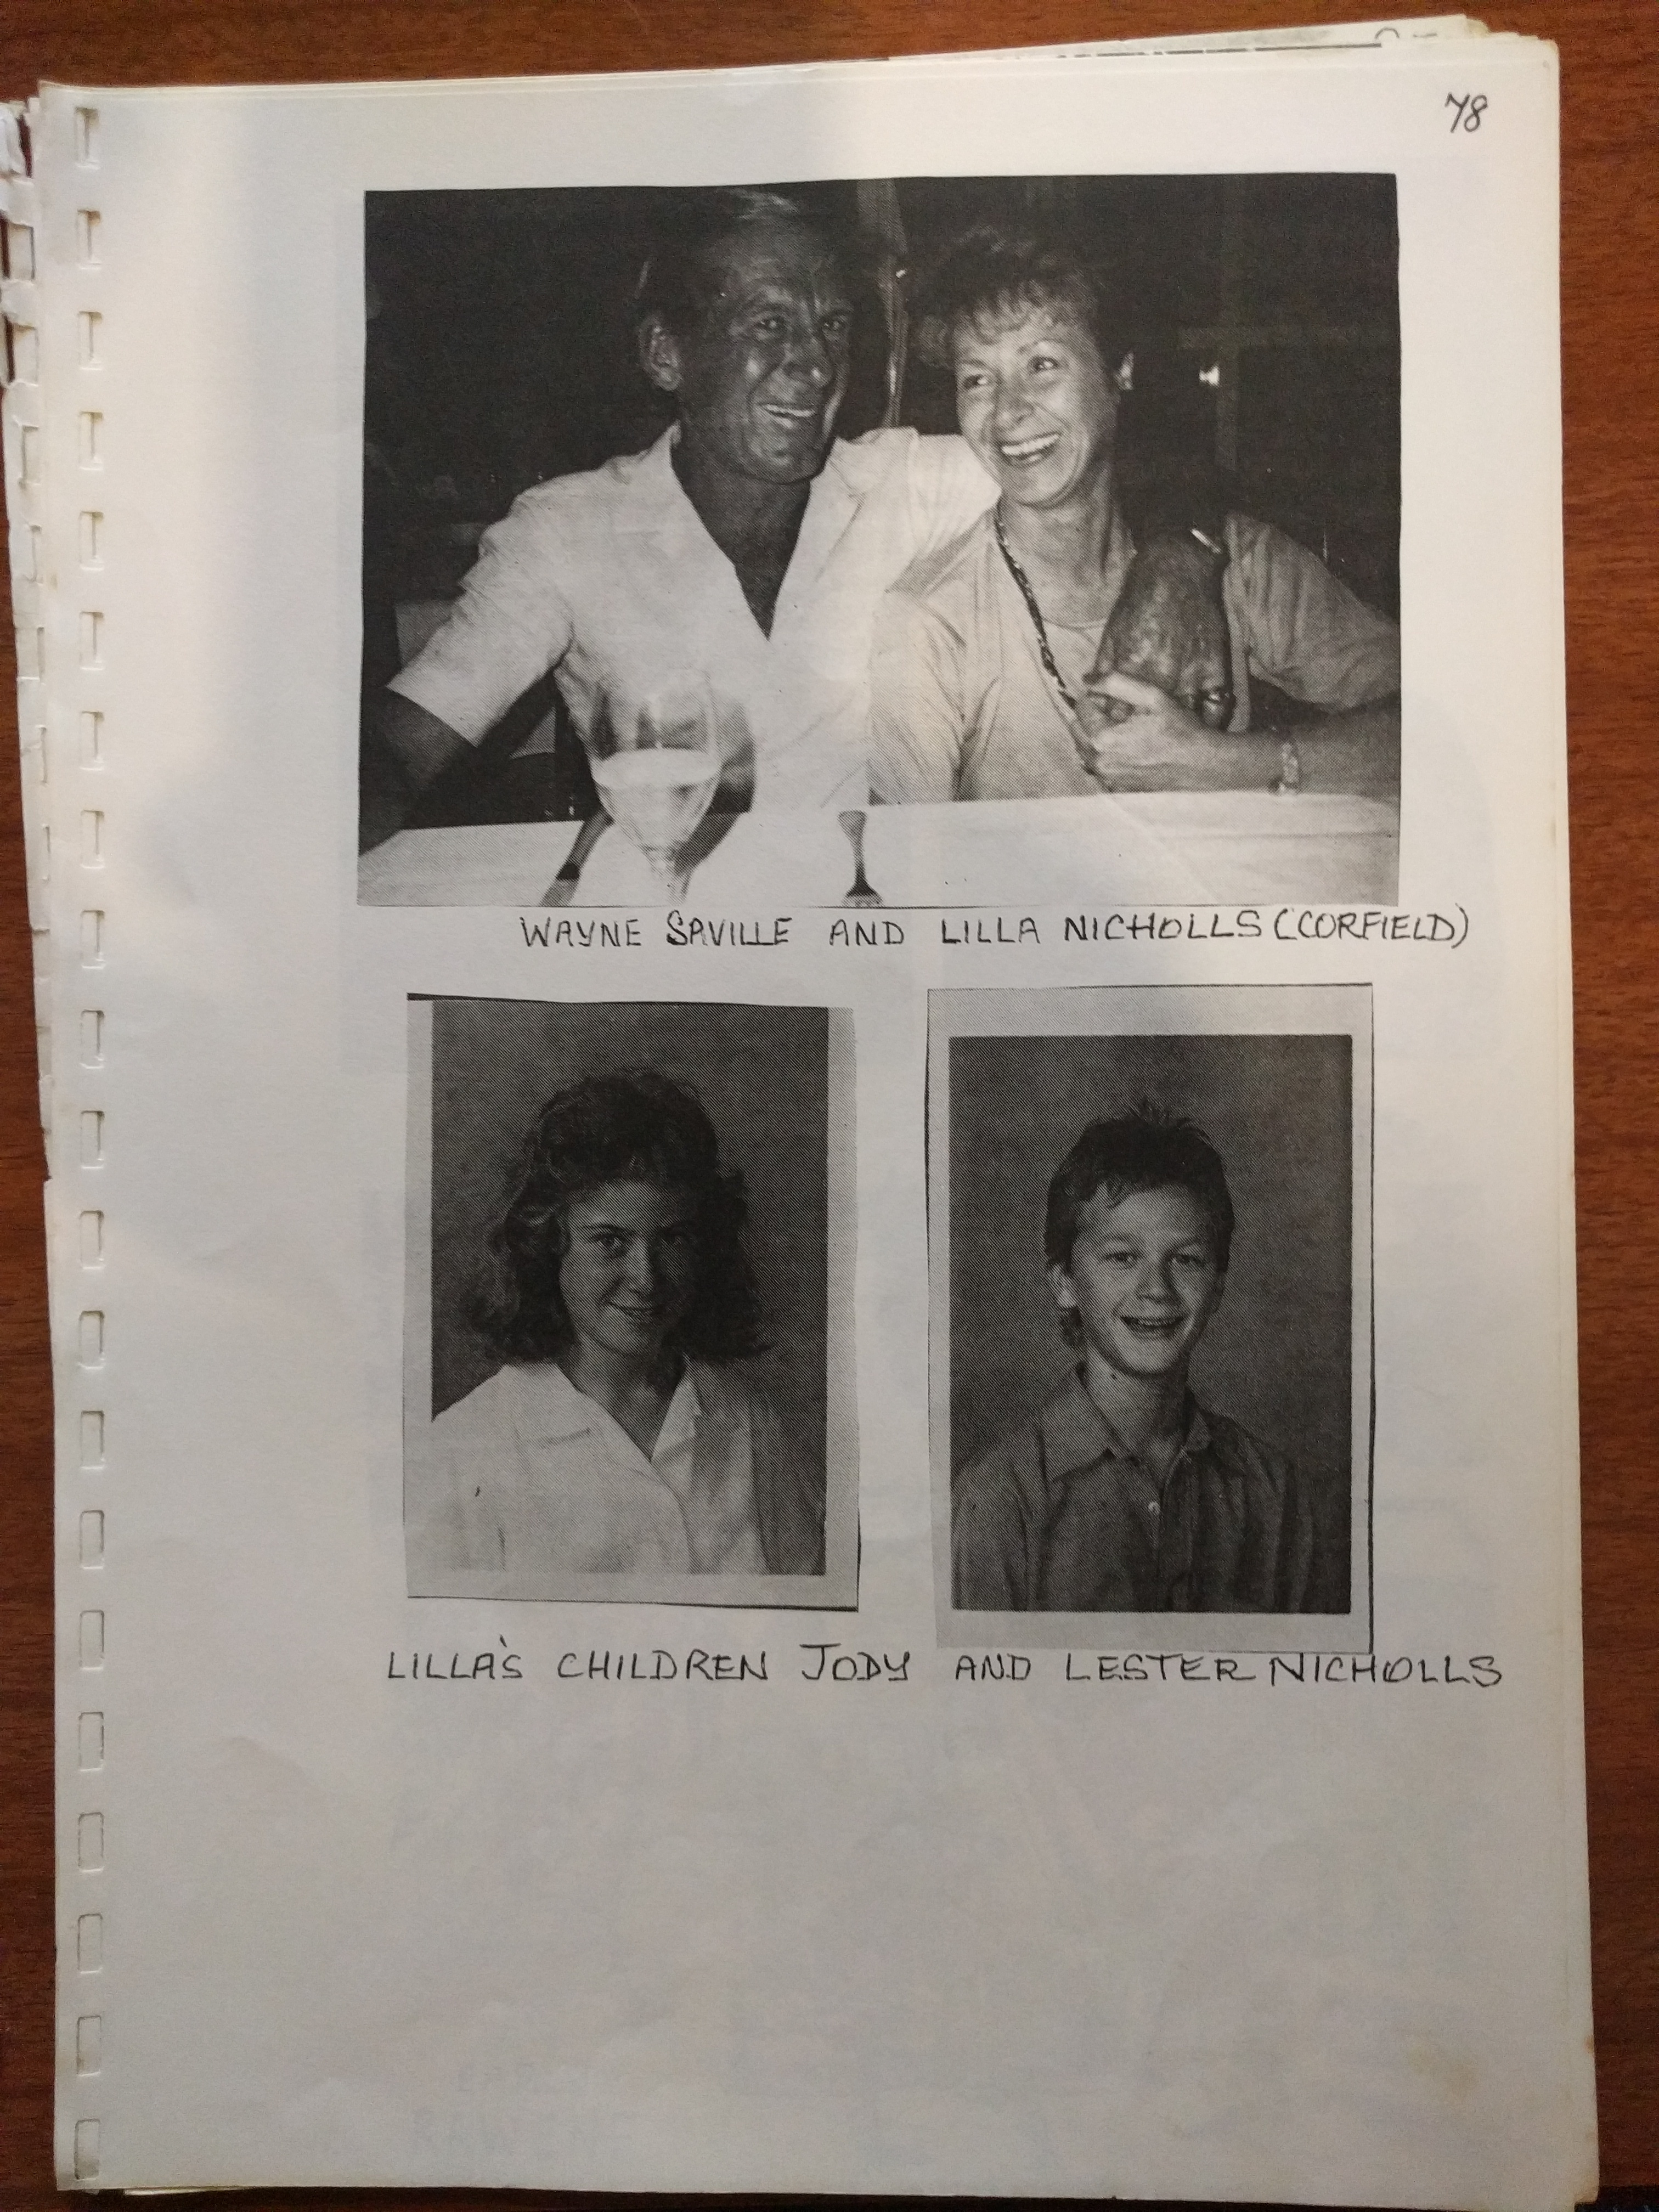 78
WAYNE SAVILLE AND LILLA NICHOLLS (CORFIELD)
LILLA'S CHILDREN JODY AND LESTER NICHOLLS